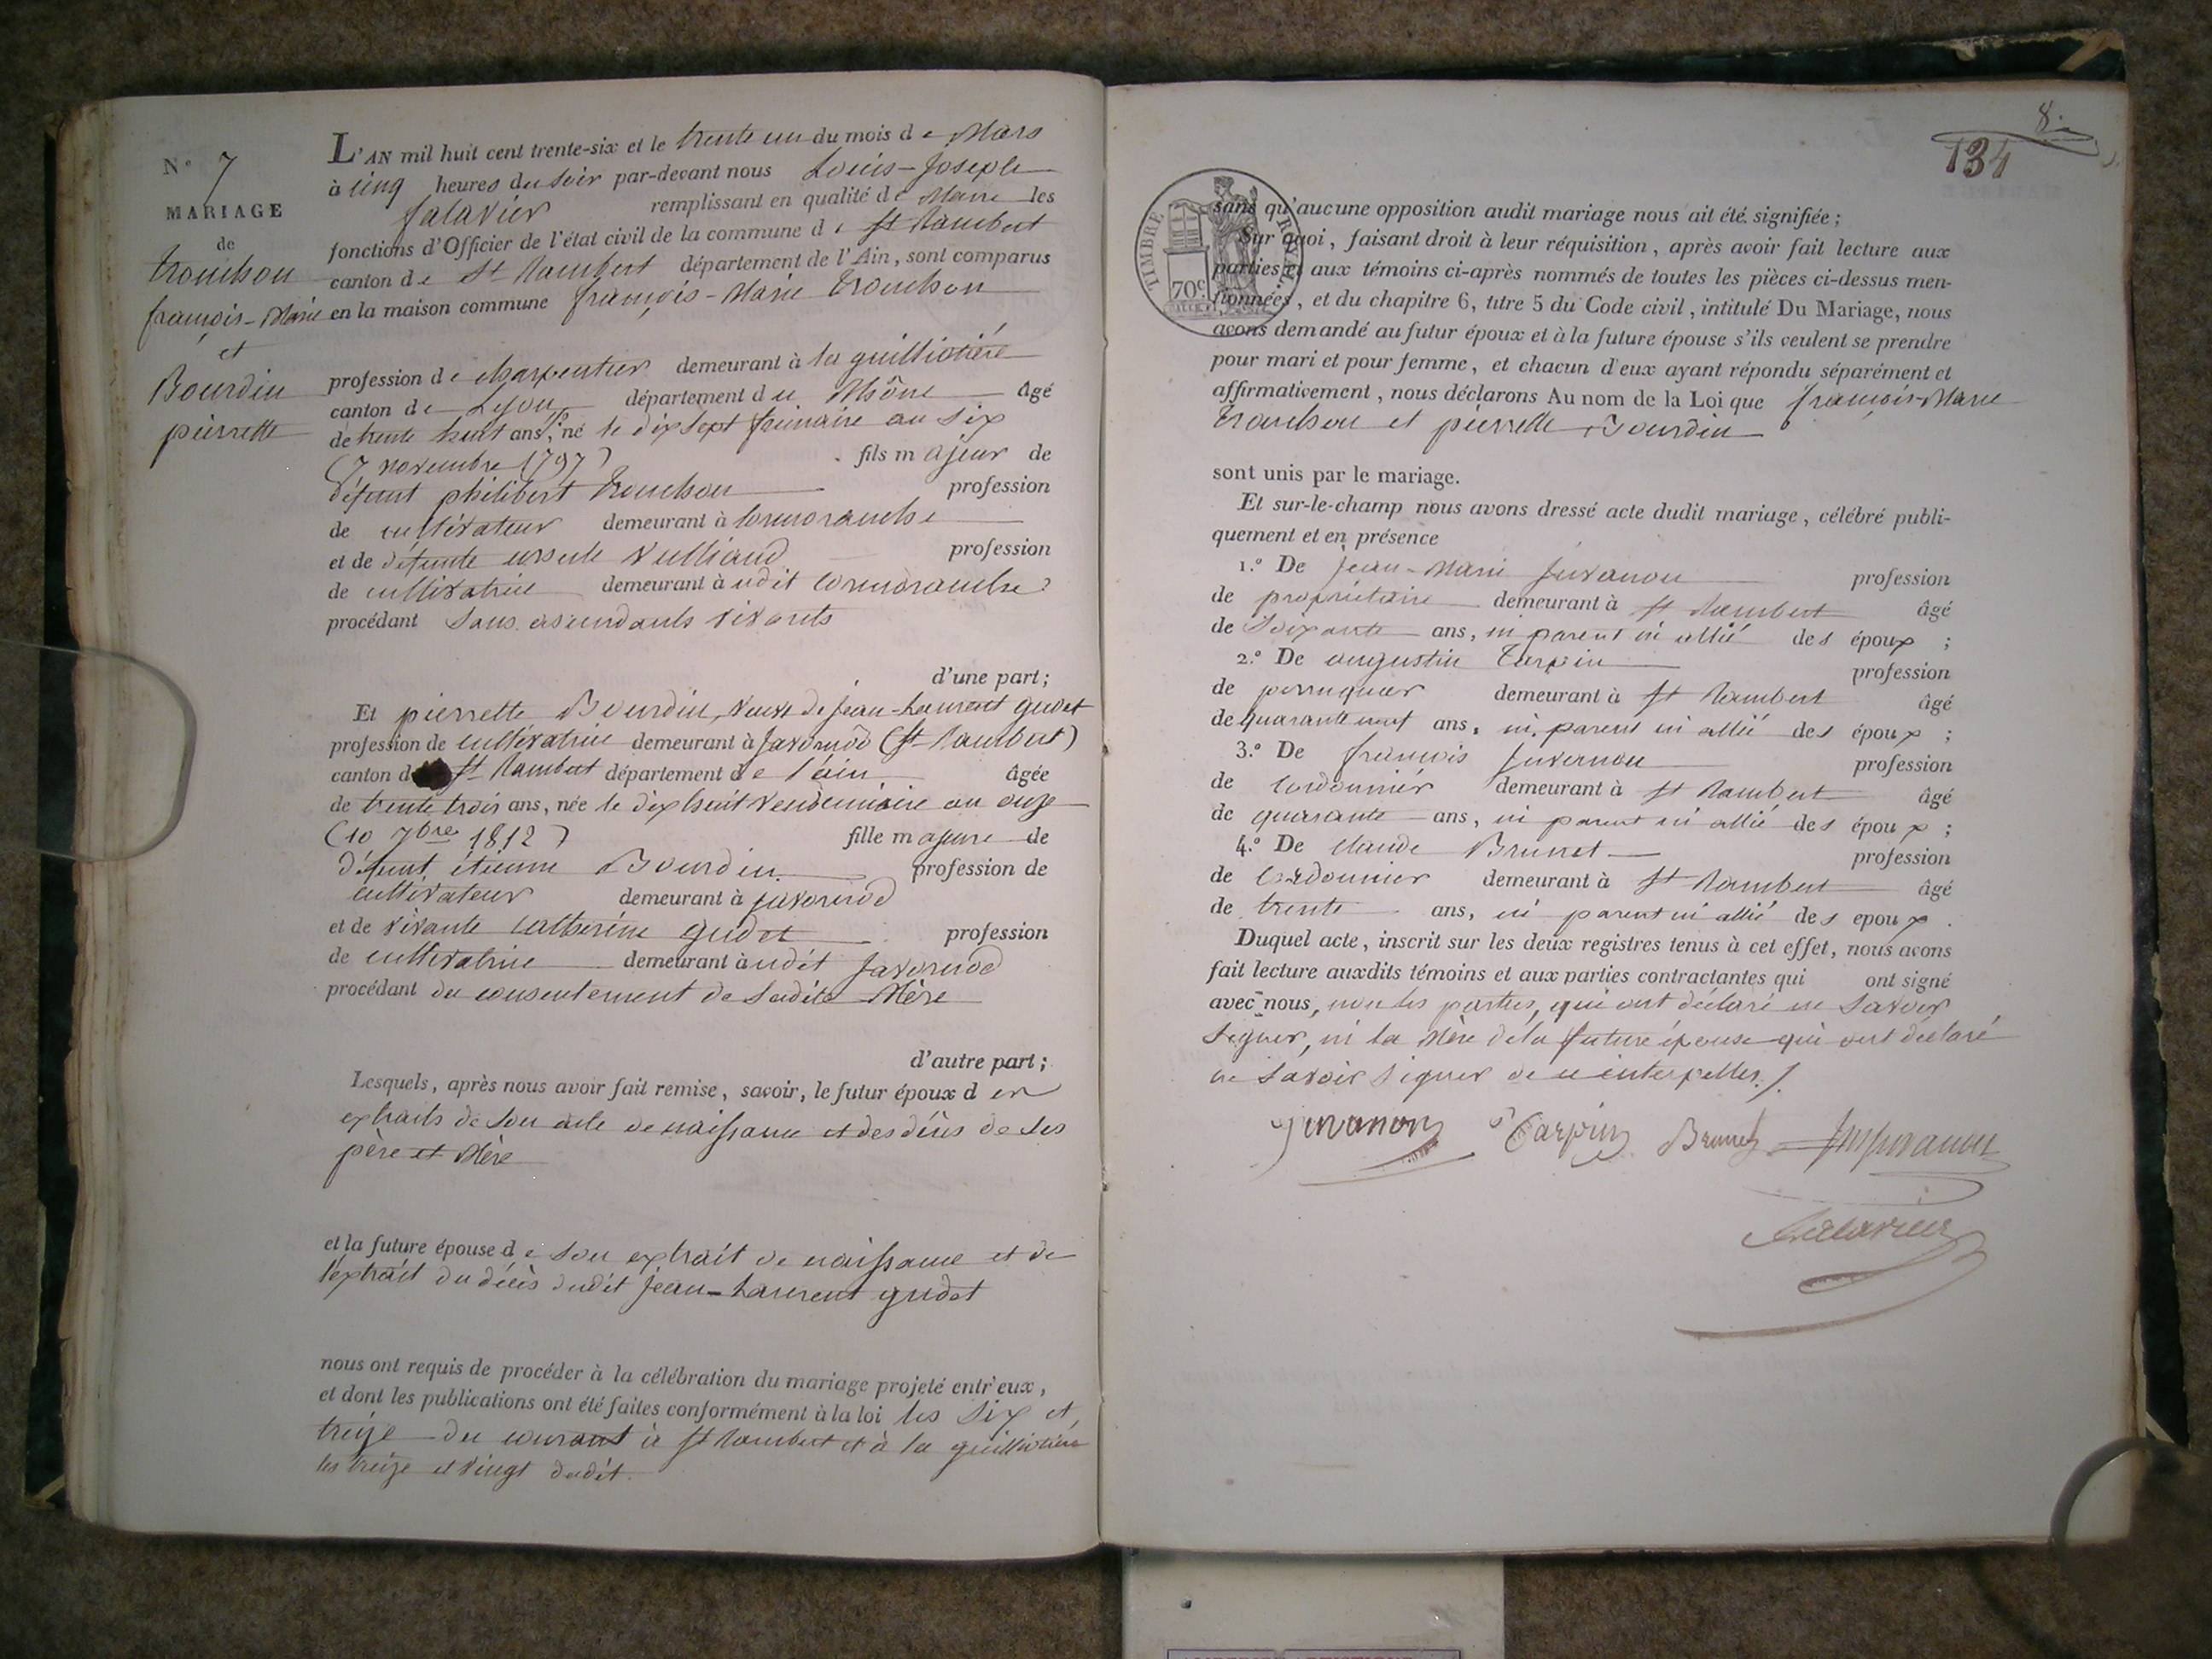 N.º 7
MARIAGE
de
trouchon
françois-Marie
et
Bourdin
pierrette
L'AN mil huit cent trente-six et le trente un du mois de Mars
à cinq heures du soir par-devant nous Louis-Joseph
falavier remplissant en qualité de Maire les
fonctions d'Officier de l'état civil de la commune de St Rambert
canton de St Rambert département de l'Ain, sont comparus
en la maison commune françois-Marie trouchon
profession de charpentier demeurant à la guillotière
canton de Lyon département du Rhône âgé
de trente huit ans, né le dix sept frimaire an six
(7 novembre 1797) fils majeur de
défunt philibert trouchon profession
de cultivateur demeurant à Cormoranche
et de défunte ursule Vulliaud profession
de cultivatrice demeurant à udit Cormoranche
procédant sans ascendants vivants
d'une part;
Et pierrette Bourdin, veuve de jean-Laurent gudet
profession de cultivatrice demeurant à javornod (St-Rambert)
canton d St Rambert département de l'ain âgée
de trente trois ans, née le dix huit vendémiaire an onze
(10 7bre 1812) fille majeure de
défunt étienne Bourdin profession de
cultivateur demeurant à javornod
et de vivante catherine gudet profession
de cultivatrice demeurant à udit javornod
procédant du consentement de sadite Mère
d'autre part;
Lesquels, après nous avoir fait remise, savoir, le futur époux d es
extraits de son acte de naissance et des décès de ses
père et Mère
et la future épouse de son extrait de naissance et de
l'extrait du décès dudit jean-Laurent gudet
nous ont requis de procéder à la célébration du mariage projeté entr'eux,
et dont les publications ont été faites conformément à la loi les six et
treize du courant à St Rambert et à la guillotière
les treize et vingt dudit.
8.
134
TIMBRE ROYAL
70c
sans qu'aucune opposition audit mariage nous ait été signifiée;
Sur quoi, faisant droit à leur réquisition, après avoir fait lecture aux
parties et aux témoins ci-après nommés de toutes les pièces ci-dessus men-
tionnées, et du chapitre 6, titre 5 du Code civil, intitulé Du Mariage, nous
avons demandé au futur époux et à la future épouse s'ils veulent se prendre
pour mari et pour femme, et chacun d'eux ayant répondu séparément et
affirmativement, nous déclarons Au nom de la Loi que françois-Marie
trouchon et pierrette Bourdin
sont unis par le mariage.
Et sur-le-champ nous avons dressé acte dudit mariage, célébré publi-
quement et en présence
1.º De jean-Marie juvanon profession
de propriétaire demeurant à St Rambert âgé
de soixante ans, ni parent ni allié des époux;
2.º De augustin tarpin profession
de perruquier demeurant à St Rambert âgé
de quarante neuf ans, ni parent ni allié des époux;
3.º De françois juvanon profession
de cordonnier demeurant à St Rambert âgé
de quarante ans, ni parent ni allié des époux;
4.º De claude Brunet profession
de cordonnier demeurant à St Rambert âgé
de trente ans, ni parent ni allié des epoux.
Duquel acte, inscrit sur les deux registres tenus à cet effet, nous avons
fait lecture auxdits témoins et aux parties contractantes qui ont signé
avec nous, non les parties, qui ont déclaré ne savoir
signer, ni la Mère de la future épouse qui ont déclaré
ne savoir signer de ce interpellés./.
juvanon Tarpin Brunet juvanon
falavier